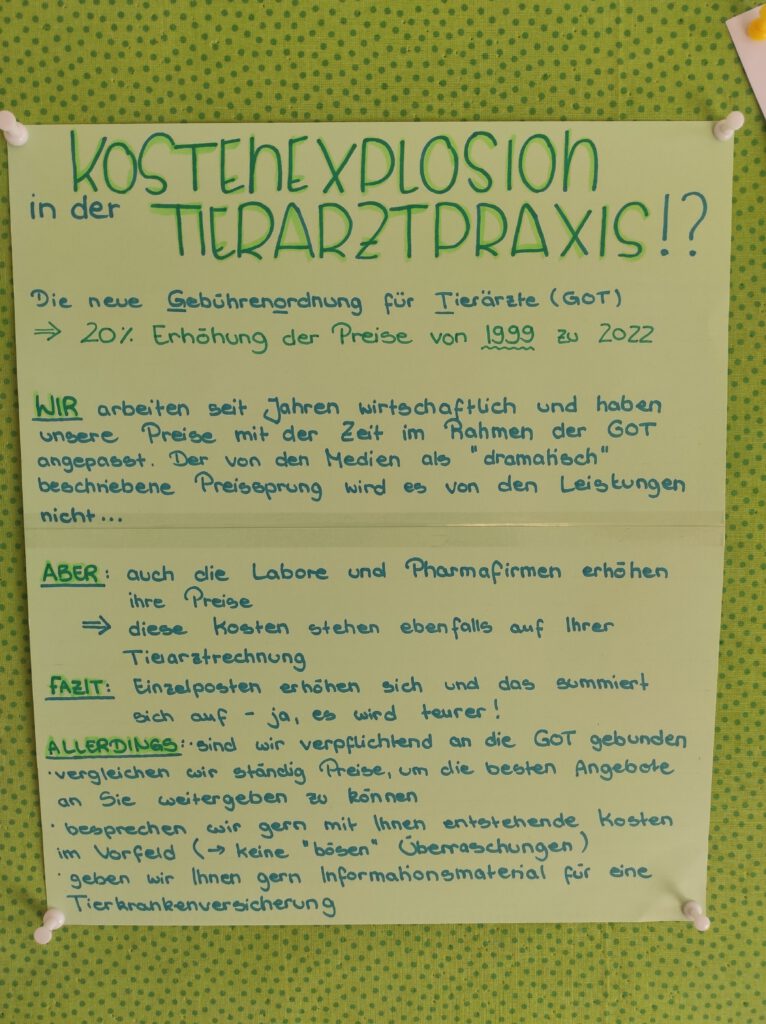 KOSTENEXPLOSION
in der TIERARZTPRAXIS!?
Die neue Gebührenordnung für Tierärzte (GOT)
⇒ 20% Erhöhung der Preise von 1999 zu 2022
WIR arbeiten seit Jahren wirtschaftlich und haben
unsere Preise mit der Zeit im Rahmen der GOT
angepasst. Der von den Medien als "dramatisch"
beschriebene Preissprung wird es von den Leistungen
nicht...
ABER: auch die Labore und Pharmafirmen erhöhen
ihre Preise
⇒ diese Kosten stehen ebenfalls auf Ihrer
Tierarztrechnung
FAZIT: Einzelposten erhöhen sich und das summiert
sich auf - ja, es wird teurer!
ALLERDINGS: · sind wir verpflichtend an die GOT gebunden
· vergleichen wir ständig Preise, um die besten Angebote
an Sie weitergeben zu können
· besprechen wir gern mit Ihnen entstehende Kosten
im Vorfeld (→ keine "bösen" Überraschungen)
· geben wir Ihnen gern Informationsmaterial für eine
Tierkrankenversicherung